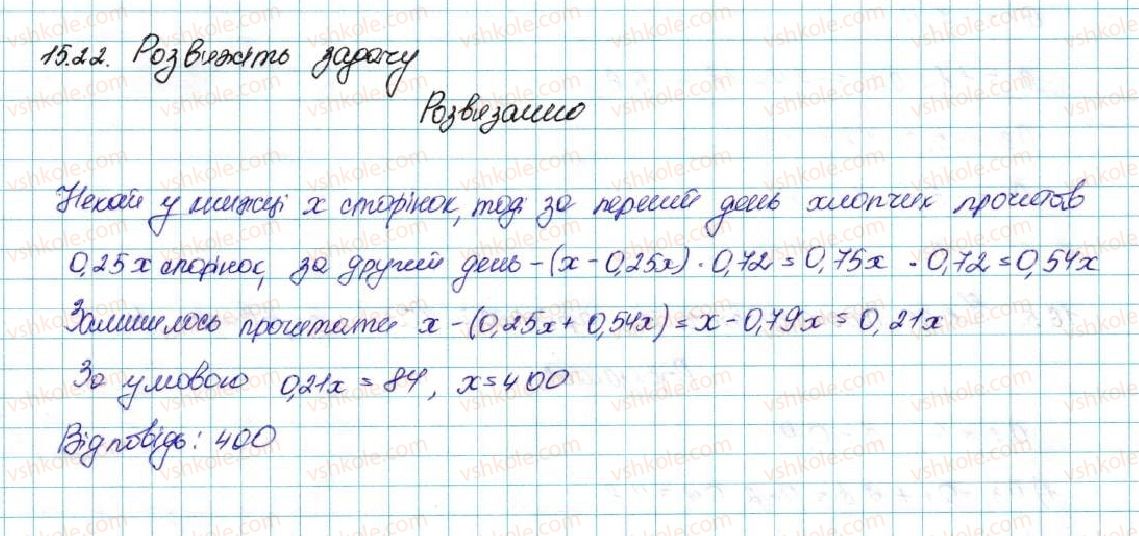 15.22. Розв'яжіть задачу
Розв'язання
Нехай у книжці x сторінок, тоді за перший день хлопчик прочитав
0,25x сторінок, за другий день - (x - 0,25x) · 0,72 = 0,75x · 0,72 = 0,54x
Залишилось прочитати x - (0,25x + 0,54x) = x - 0,79x = 0,21x
За умовою 0,21x = 84, x = 400
Відповідь: 400
vshkole.com